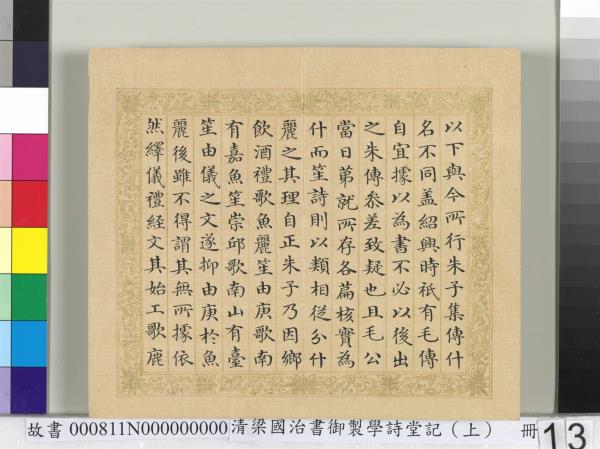 以下與今所行朱子集傳什
名不同盖紹興時祇有毛傳
自宜據以為書不必以後出
之朱傳叅差致疑也且毛公
當日第就所存各篇核實為
什而笙詩則以類相從分什
麗之其理自正朱子乃因鄉
飲酒禮歌魚麗笙由庚歌南
有嘉魚笙崇邱歌南山有臺
笙由儀之文遂抑由庚於魚
麗後雖不得謂其無所據依
然繹儀禮經文其始工歌鹿
故書 000811N000000000 清梁國治書御製學詩堂記（上） 冊 13